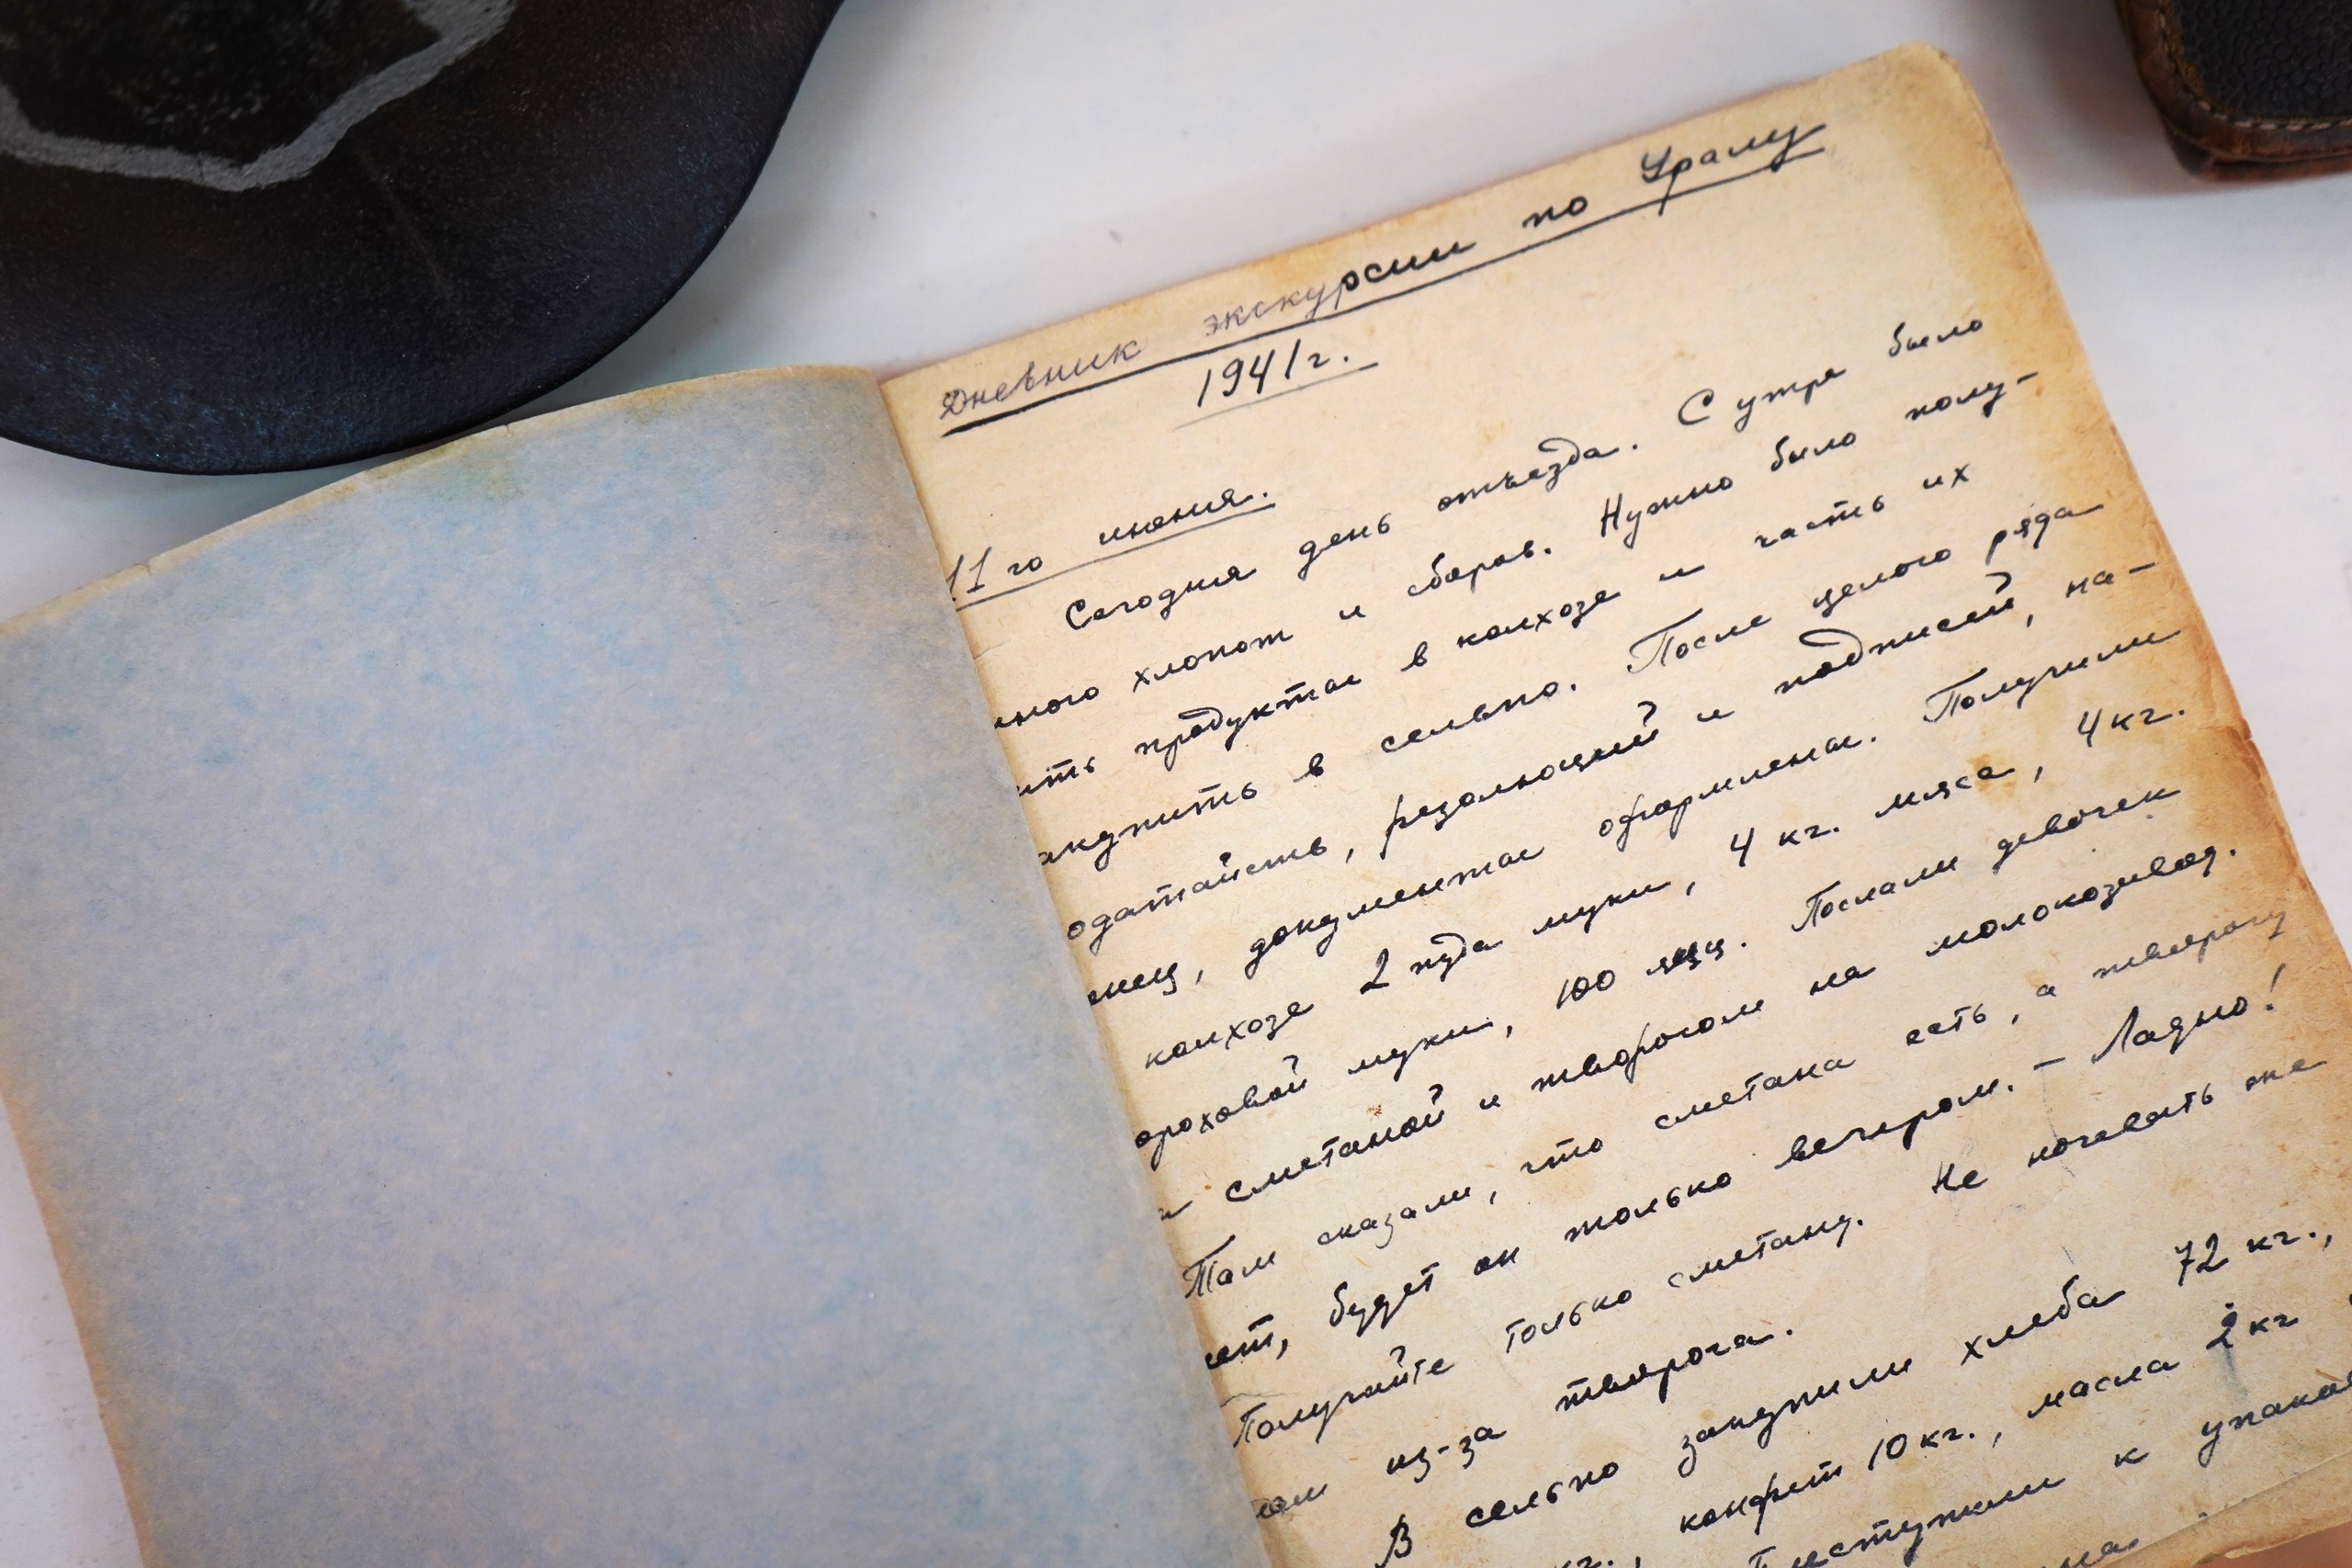 Дневник экскурсии по Уралу
1941 г.
11 го июня.
Сегодня день отъезда. С утра было
много хлопот и сборов. Нужно было полу-
ить продуктае в колхозе и часть их
акупить в сельпо. После целого ряда
одатайств, резолюций и подписей, на-
онец, документае оформленае. Получили
колхозе 2 пуда муки, 4 кг. мяса, 4 кг.
ороховой муки, 100 яиц. Послали девочек
а сметаной и творогом на молокозавод.
Там сказали, что сметана есть, а творогу
ет, будет он только вечером. – Ладно!
Получайте только сметану. Не ночевать же
там из-за творога.
В сельпо закупили хлеба 72 кг.,
кг., конфет 10 кг., масла 2 кг
к упаков